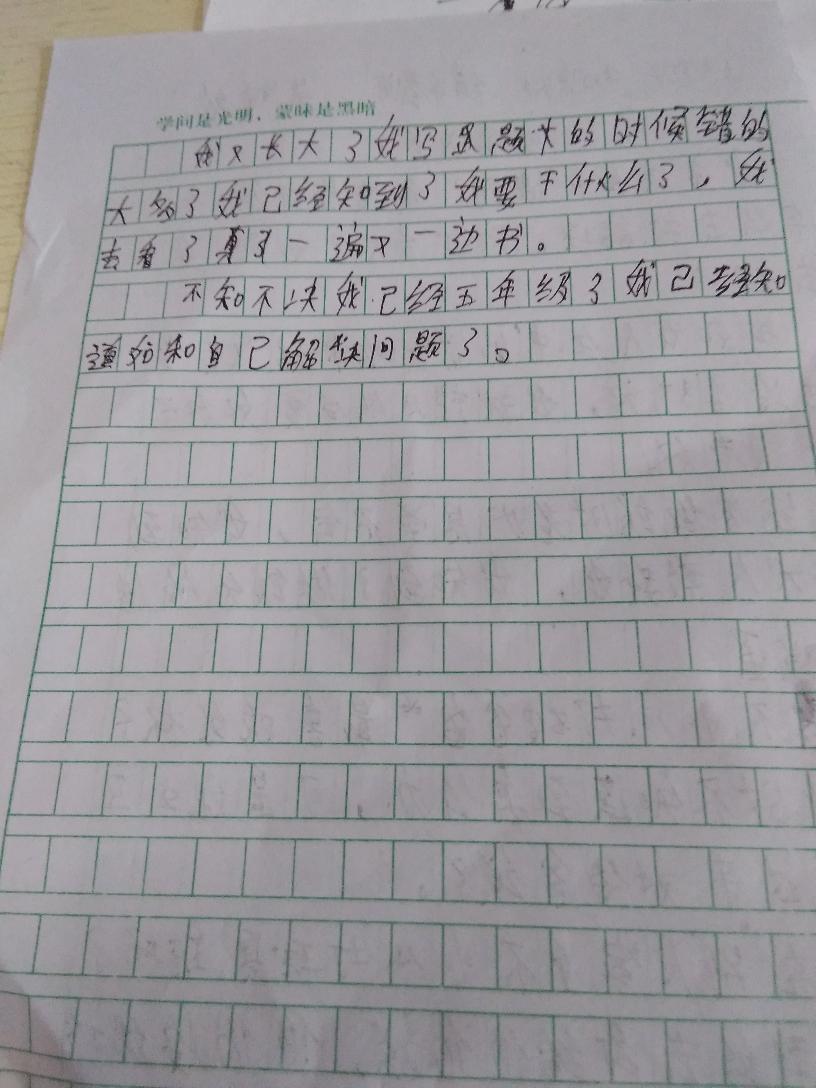 学问是光明，蒙昧是黑暗
我又长大了我写题大的时候错的
大多了我已经知到了我要干什么了，我
去看了真了一遍又一边书。
不知不决我已经五年级了我已经知
道如和自己解块问题了。